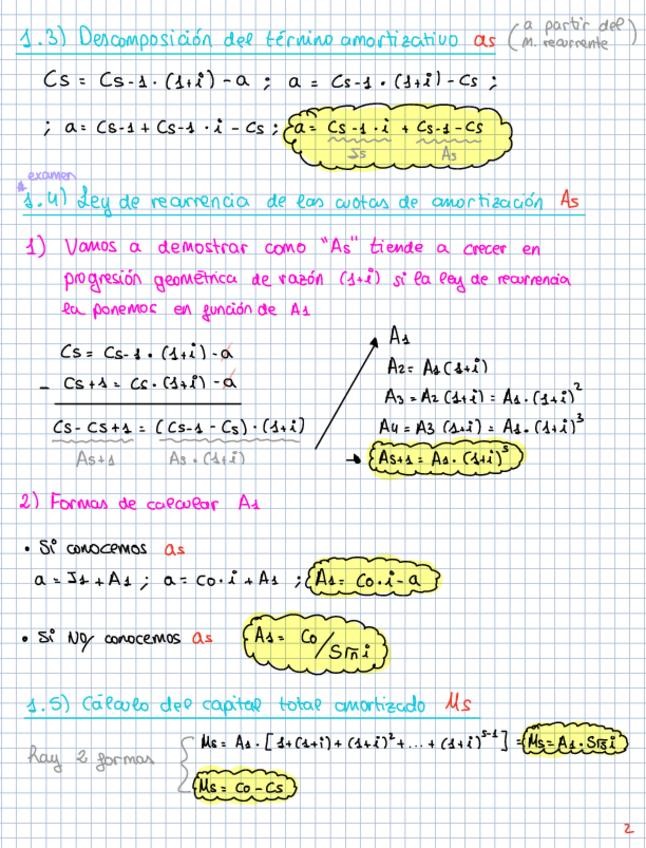 1.3) Descomposición del término amortizativo as (a partir del m. recurrente)
Cs = Cs-1 · (1+i) - a ; a = Cs-1 · (1+i) - Cs ;
; a = Cs-1 + Cs-1 · i - Cs ; a = Cs-1 · i + Cs-1 - Cs
Is As
* examen
1.4) Ley de recurrencia de las cuotas de amortización As
1) Vamos a demostrar como "As" tiende a crecer en
progresión geométrica de razón (1+i) si la ley de recurrencia
la ponemos en función de A1
Cs = Cs-1 · (1+i) - a
- Cs+1 = Cs · (1+i) - a
Cs - Cs+1 = (Cs-1 - Cs) · (1+i)
As+1 As · (1+i)
A1
A2 = A1 (1+i)
A3 = A2 (1+i) = A1 · (1+i)²
A4 = A3 (1+i) = A1 · (1+i)³
→ As+1 = A1 · (1+i)ˢ
2) Formas de calcular A1
• Si conocemos as
a = I1 + A1 ; a = Co · i + A1 ; A1 = Co · i - a
• Si NO conocemos as A1 = Co / Sn̅ i
1.5) Cálculo del capital total amortizado Ms
Hay 2 formas
Ms = A1 · [1 + (1+i) + (1+i)² + ... + (1+i)ˢ⁻¹] = Ms = A1 · Ss̅ i
Ms = Co - Cs
2